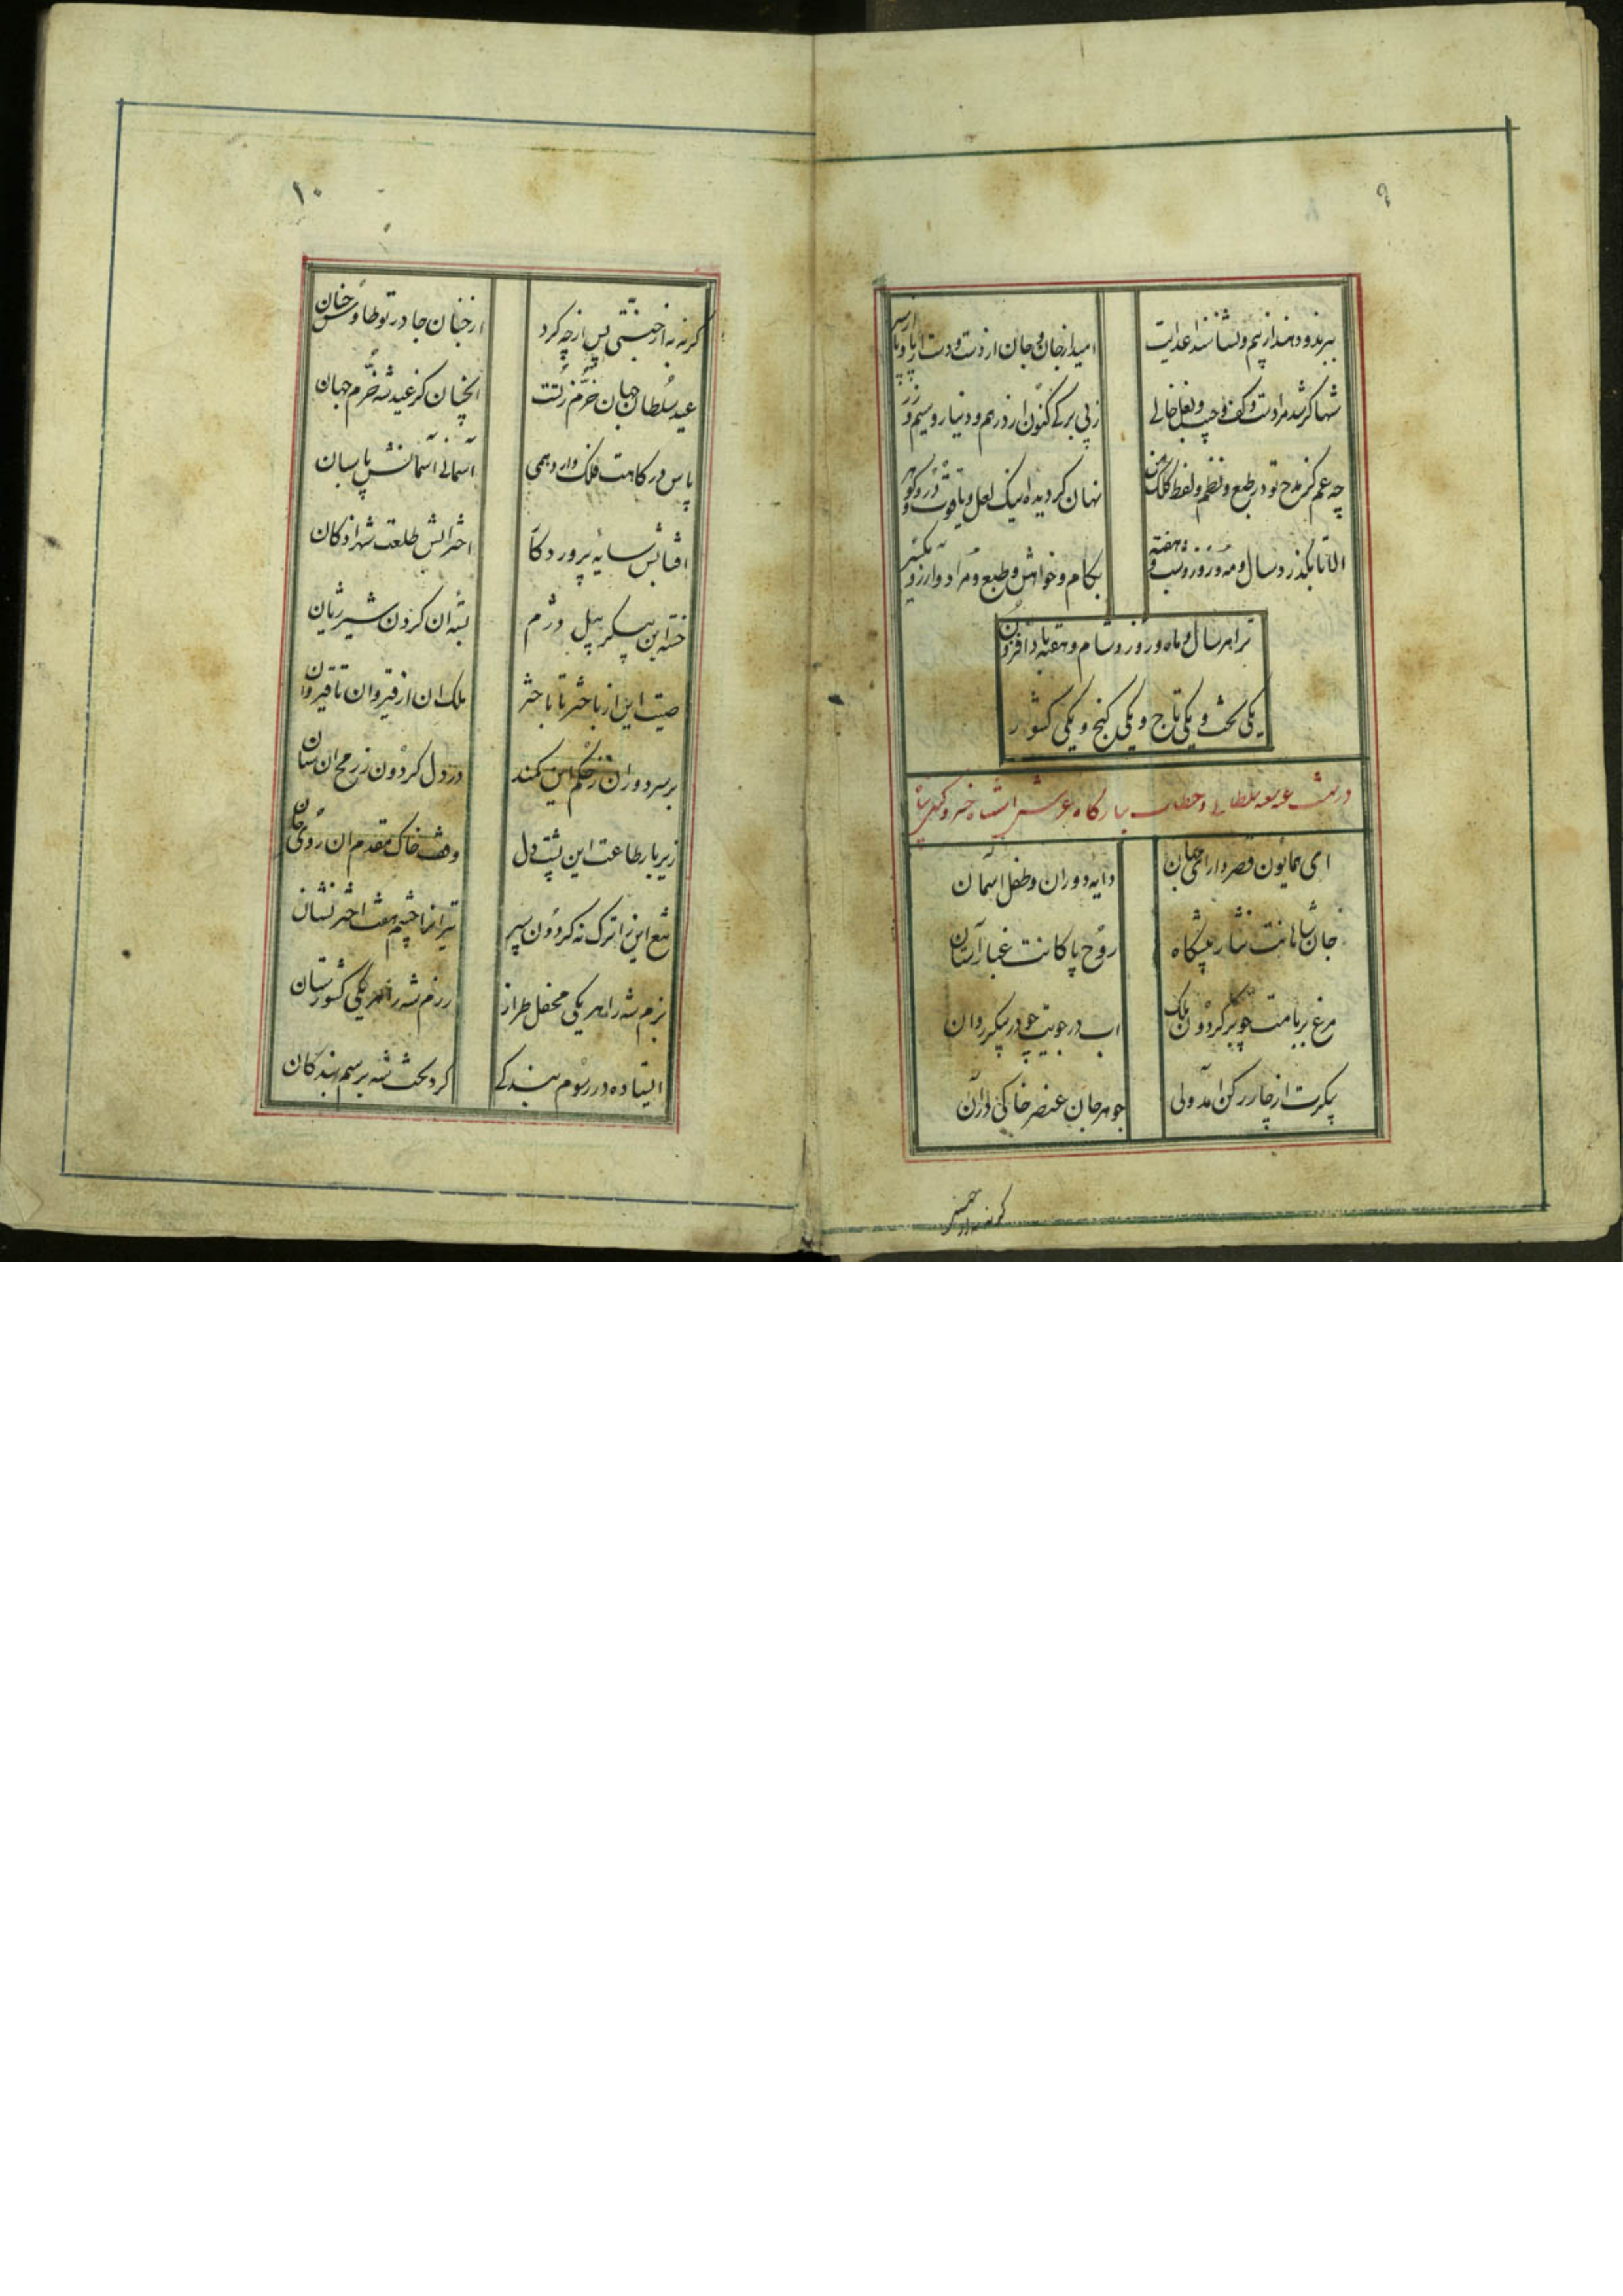 ۹
ببرند و دهند از بیم و نشانند اعدایت
امید از جان و جان از دست و دست از پا و پا از سر
شها کر شد مرا دست و کف و جیب و بغل خالی
ز بی برکی کنون از درهم و دینار و سیم و زر
چه غم کز مدح تو در طبع و نظم و لفظ کلک من
نهان کردیده اینک لعل و یاقوت و در و کوهر
الا تا بکذرد سال و مه و روز و شب و هفته
بکام و خواهش و طبع و مراد و آرزو یکسر
ترا هر سال و ماه و روز و شام و هفته باد افزون
یکی تخت و یکی تاج و یکی کنج و یکی کشور
در تهنیت عید سلطانی و خطاب ببارکاه عرش اشتباه خسرو
ای همایون قصر دارای جهان
دایه دوران و طفل آسمان
جان شاهانت نثار پیشکاه
روح پاکانت غبار آستان
مرغ بر بامت چو بر کردون ملک
آب در جویت چو در پیکر روان
پیکرت از چار رکن آمد ولی
جوهر جان عنصر خاکی در آن
کر نه به از جنتی
۱۰
کر نه به از جنتی پس از چه کرد
از جنان جا در تو طاوس جنان
عید سلطان جهان خرم ز تست
آنچنان کز عید شه خرم جهان
پاس درکاهت فلک دارد همی
آسمانی آسمانش پاسبان
آفتابش سایه پروردکار
اخترانش طلعت شهزادکان
خسته این پیکر پیل دژم
بسته آن کردن شیر ژیان
صیت این از باختر تا باختر
ملک آن از قیروان تا قیروان
بر سر دوران ز حکم این کمند
در دل کردون ز رمح آن سنان
زیر بار طاعت این پشت دل
وقف خاک مقدم آن روی جان
تیغ این را ترک نه کردون سپر
تیر آنرا چشم هفت اختر نشان
بزم شه را هر یکی محفل طراز
رزم شه را هر یکی کشورستان
ایستاده در رسوم بندکی
کرد تخت شه برسم بندکان